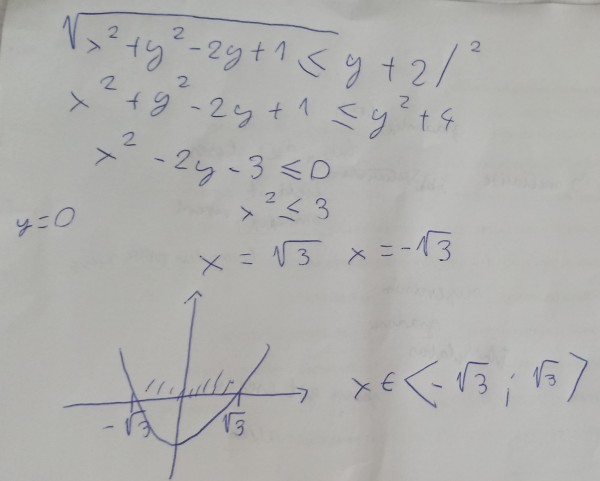 √x² + y² - 2y + 1 ≤ y + 2 /²
x² + y² - 2y + 1 ≤ y² + 4
x² - 2y - 3 ≤ 0
y = 0 x² ≤ 3
x = √3 x = -√3
-√3 √3 x ∈ <-√3 ; √3>